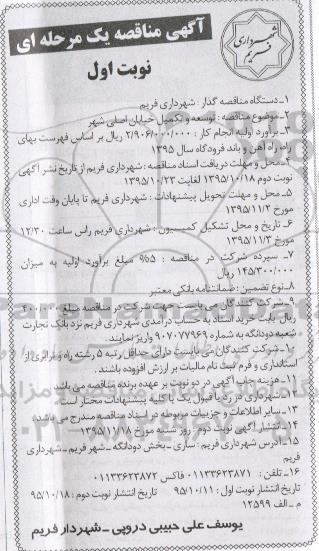 شهرداری
فریم
آگهی مناقصه یک مرحله ای
نوبت اول
۱-دستگاه مناقصه گذار : شهرداری فریم
۲-موضوع مناقصه : توسعه و تکمیل خیابان اصلی شهر
۳-برآورد اولیه انجام کار : ۲/۹۰۶/۰۰۰/۰۰۰ ریال بر اساس فهرست بهای
راه، راه آهن و باند فرودگاه سال ۱۳۹۵
۴-محل و مهلت دریافت اسناد مناقصه : شهرداری فریم از تاریخ نشر آگهی
نوبت دوم ۱۳۹۵/۱۰/۱۸ لغایت ۱۳۹۵/۱۰/۲۳
۵-محل و مهلت تحویل پیشنهادات : شهرداری فریم تا پایان وقت اداری
مورخ ۱۳۹۵/۱۱/۲
۶-تاریخ و محل تشکیل کمیسیون : شهرداری فریم راس ساعت ۱۲/۳۰
مورخ ۱۳۹۵/۱۱/۳
۷- سپرده شرکت در مناقصه : ۵%‏ مبلغ برآورد اولیه به میزان
۱۴۵/۳۰۰/۰۰۰ ریال
۸-نوع تضمین : ضمانتنامه بانکی معتبر
۹-شرکت کنندگان می بایست جهت شرکت در مناقصه مبلغ
ریال بابت خرید اسناد به حساب درآمدی شهرداری فریم نزد بانک تجارت
شعبه دودانگه به شماره ۹۰۷۰۷۷۹۶۹ واریز نمایند.
۱۰-شرکت کنندگان می بایست دارای حداقل رتبه ۵ رشته راه و ترابری از
استانداری و فرم ثبت نام مالیات بر ارزش افزوده باشند.
۱۱-هزینه چاپ آگهی در دو نوبت بر عهده برنده مناقصه می باشد
۱۲-شهرداری در رد یا قبول یک یا کلیه پیشنهادات مختار است
۱۳-سایر اطلاعات و جزییات مربوطه در اسناد مناقصه مندرج می باشد.
۱۴-انتشار آگهی نوبت دوم : روز شنبه مورخ ۱۳۹۵/۱۰/۱۸
۱۵-آدرس شهرداری فریم : ساری – بخش دودانگه – شهر فریم – شهرداری
فریم
۱۶-تلفن : ۰۱۱۳۳۶۲۳۸۷۱ فاکس ۰۱۱۳۳۶۲۳۸۷۲
تاریخ انتشار نوبت اول : ۹۵/۱۰/۱۱ تاریخ انتشار نوبت دوم : ۹۵/۱۰/۱۸
م - الف ۱۲۵۹۹
یوسف علی حبیبی دروپی – شهردار فریم